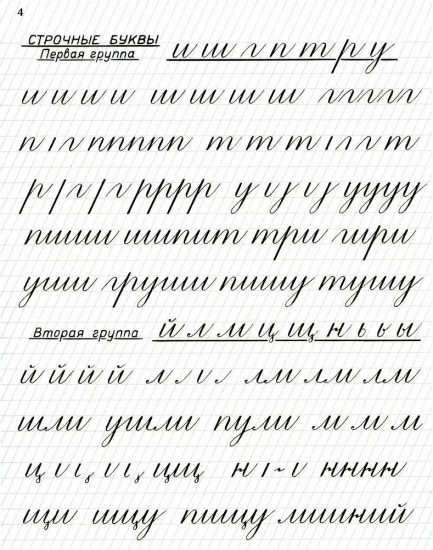 4
СТРОЧНЫЕ БУКВЫ
Первая группа и ш г п т р у
и и и и ш ш ш ш ггггг
п г ппппп т т т г г т
р г г рррр у уууу
пиши шипит три гири
уши груши пишу тушу
Вторая группа й л м ц щ н ь ы
й й й й л лм лм лм
шли ушли пули м м м
ц цщ н нннн
щи ищу пищу лишний